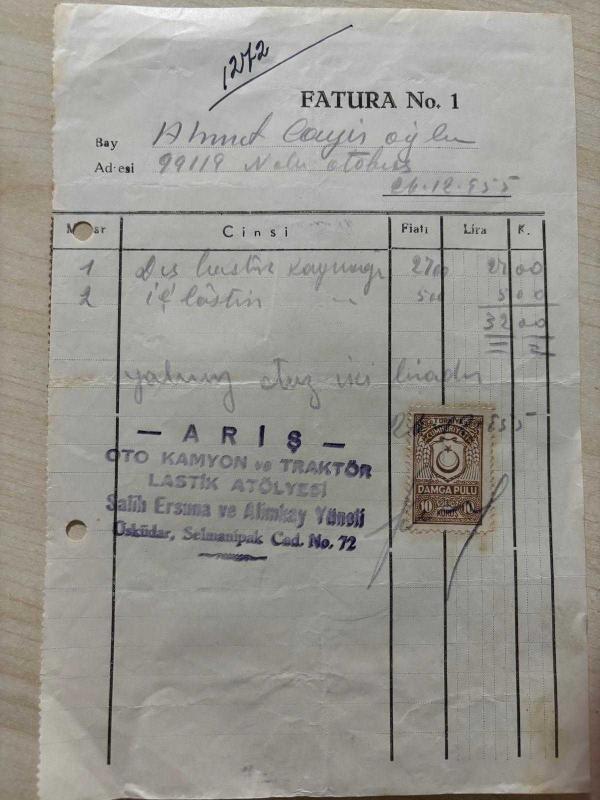 1272
FATURA No. 1
Bay Ahmet oğlu
Adresi 99119 Nolu otobüs
26.12.955
Cinsi Fiatı Lira K.
1 Dış lastik kaynağı 2700 27 00
2 iç lâstik " 500 5 00
32 00
yalnız otuz iki liradır
— ARIŞ —
OTO KAMYON ve TRAKTÖR
LASTİK ATÖLYESİ
Salih Ersuna ve Alimkay Yüneti
Üsküdar, Selmanipak Cad. No. 72
TÜRKİYE
CUMHURİYETİ
DAMGA PULU
10 10
KURUŞ